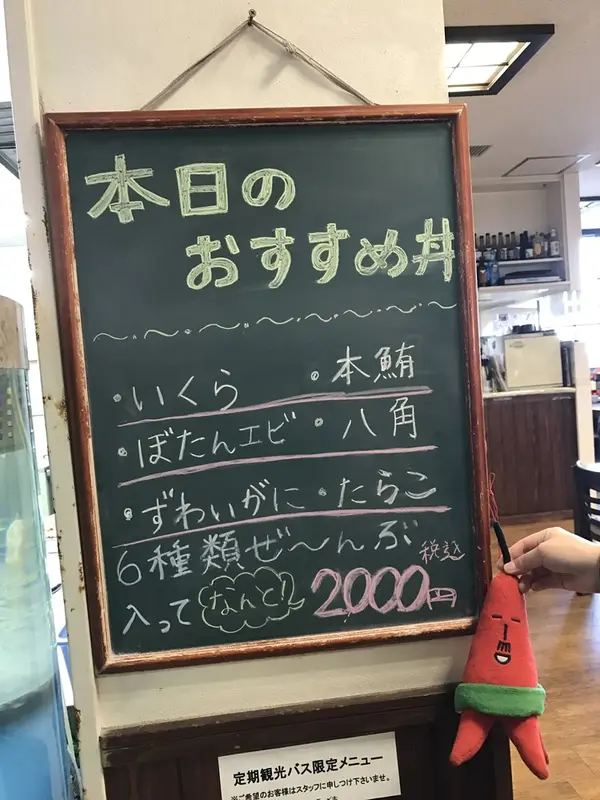 本日の
おすすめ丼
・いくら ・本鮪
・ぼたんエビ ・八角
・ずわいがに ・たらこ
6種類ぜ〜んぶ
入って なんと! 2000円 税込
定期観光バス限定メニュー
※ご希望のお客様はスタッフに申しつけ下さいませ。